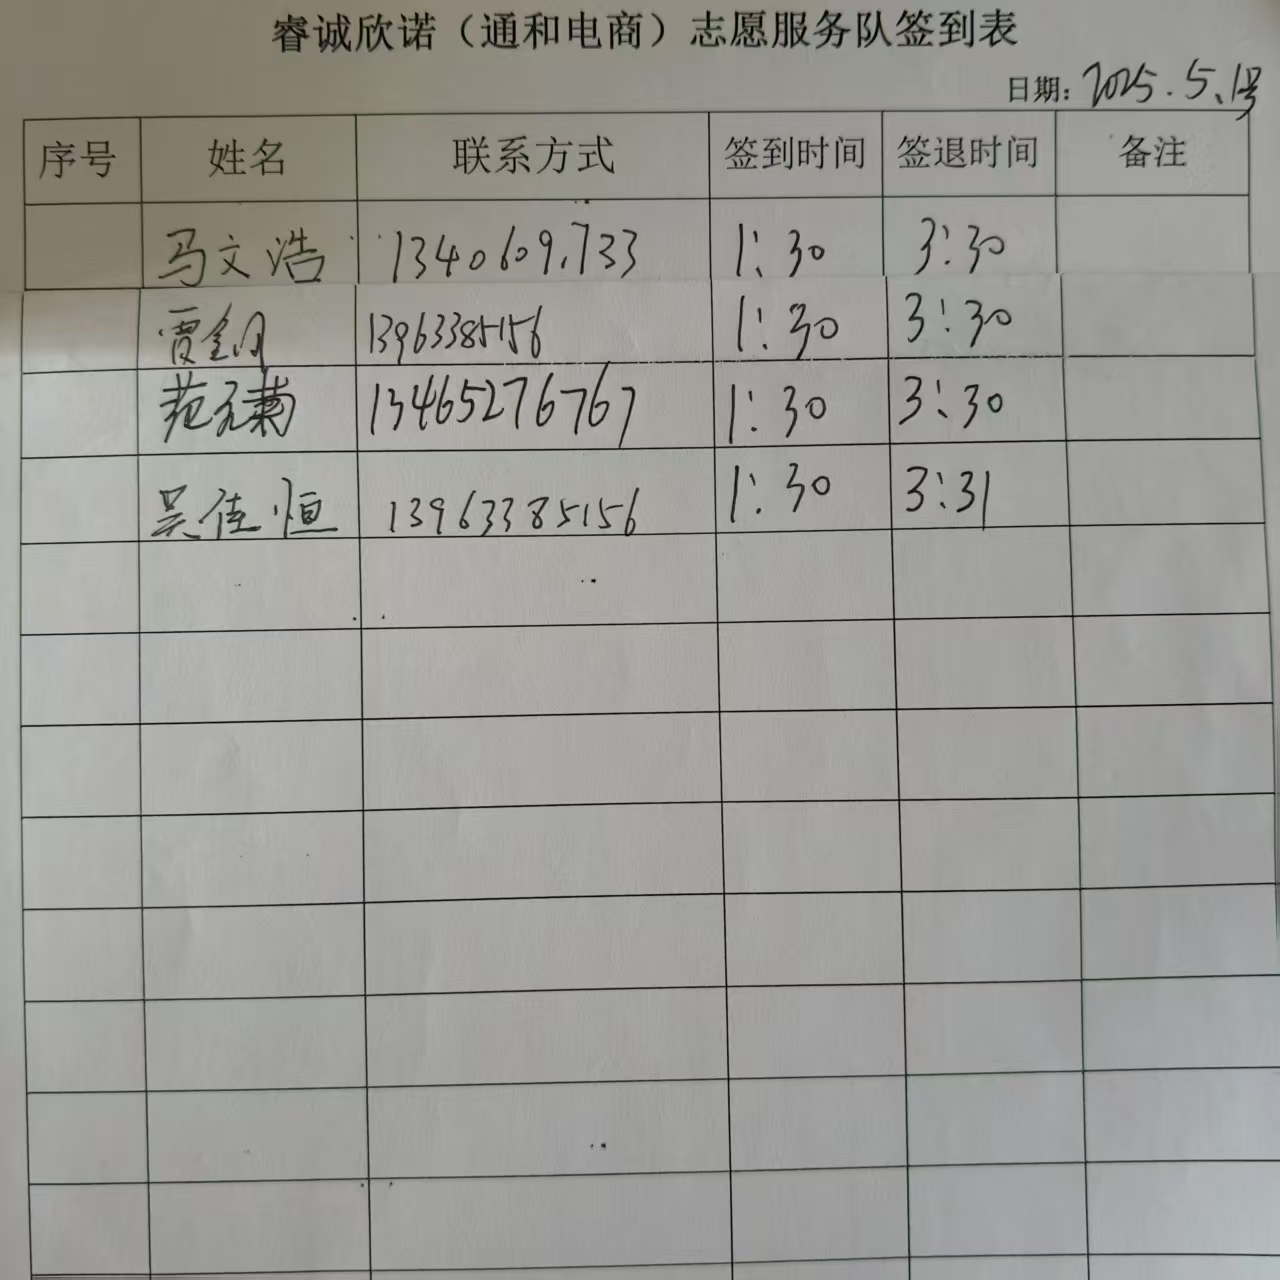 睿诚欣诺（通和电商）志愿服务队签到表
日期：2025.5.1号
序号 姓名 联系方式 签到时间 签退时间 备注
马文浩 1340609.733 1:30 3:30
贾 13963385156 1:30 3:30
范 菊 13465276767 1:30 3:30
吴佳恒 13963385156 1:30 3:31